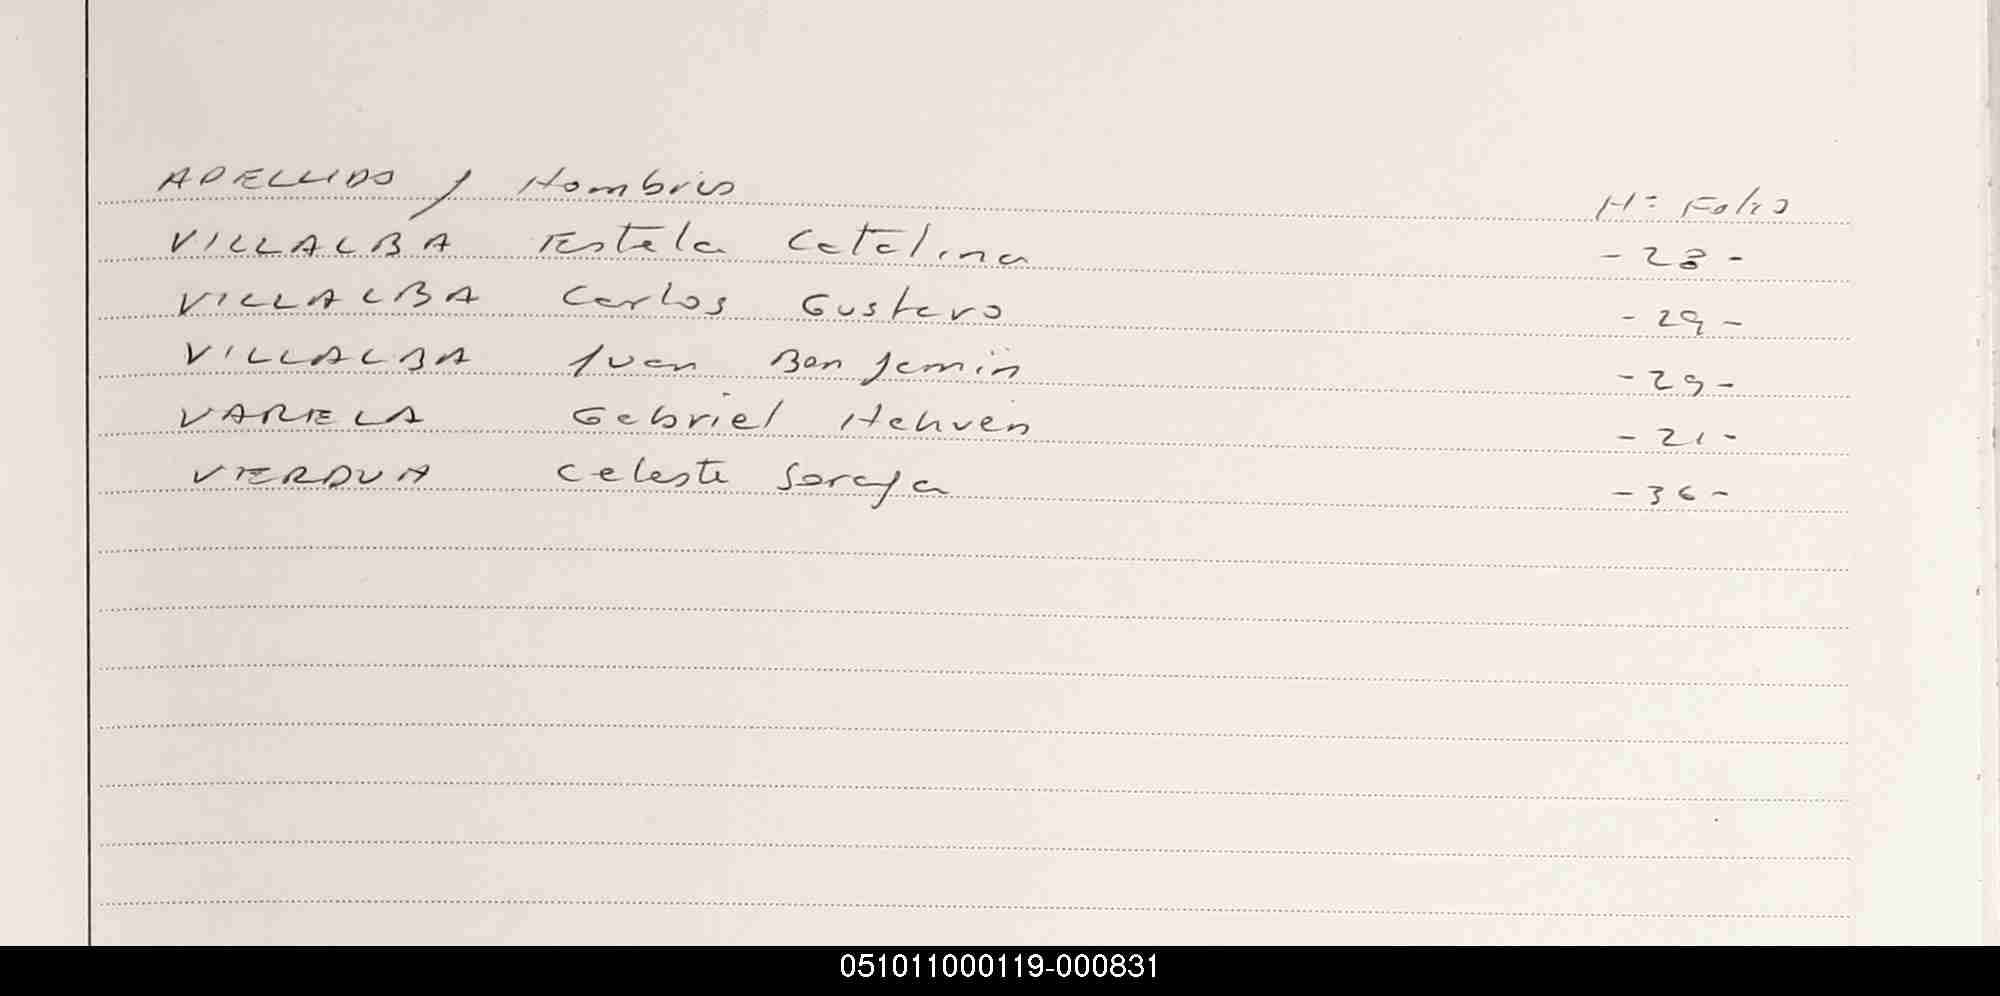 APELLIDO y Nombres Nº Folio
VILLALBA Estela Catalina -28-
VILLALBA Carlos Gustavo -29-
VILLALBA Ivan Benjamin -29-
VARELA Gabriel Nahuen -21-
VERDUA Celeste Soraya -36-
051011000119-000831